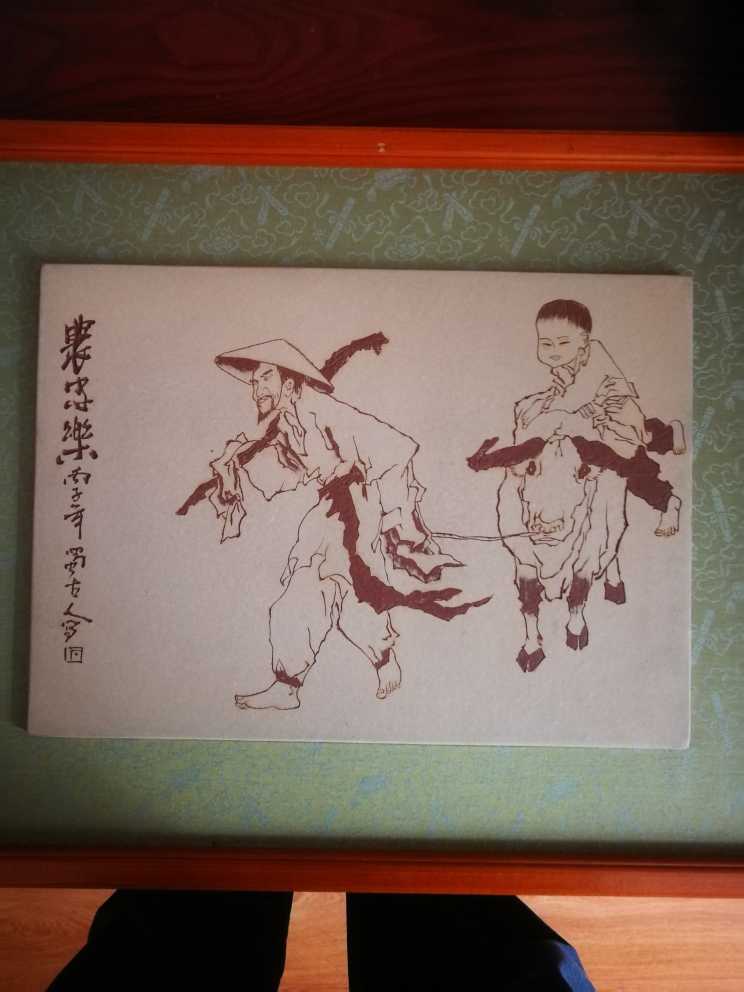 農家樂丙子年蜀古人写